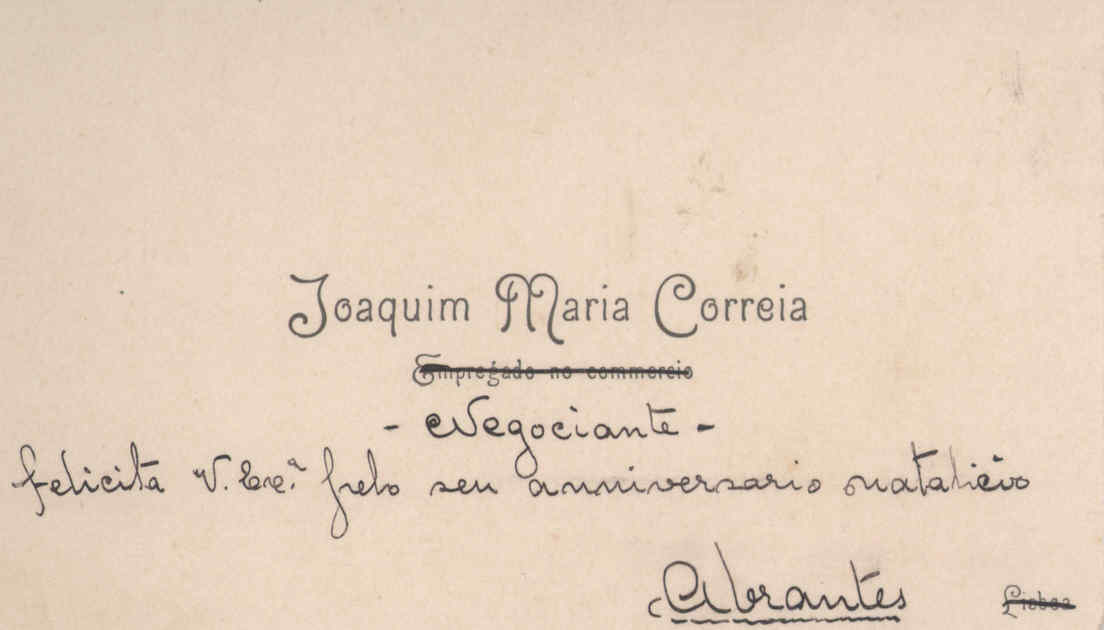 Joaquim Maria Correia
Empregado no commercio
- Negociante -
felicita V. Exª. pelo seu anniversario natalicio
Abrantes Lisboa